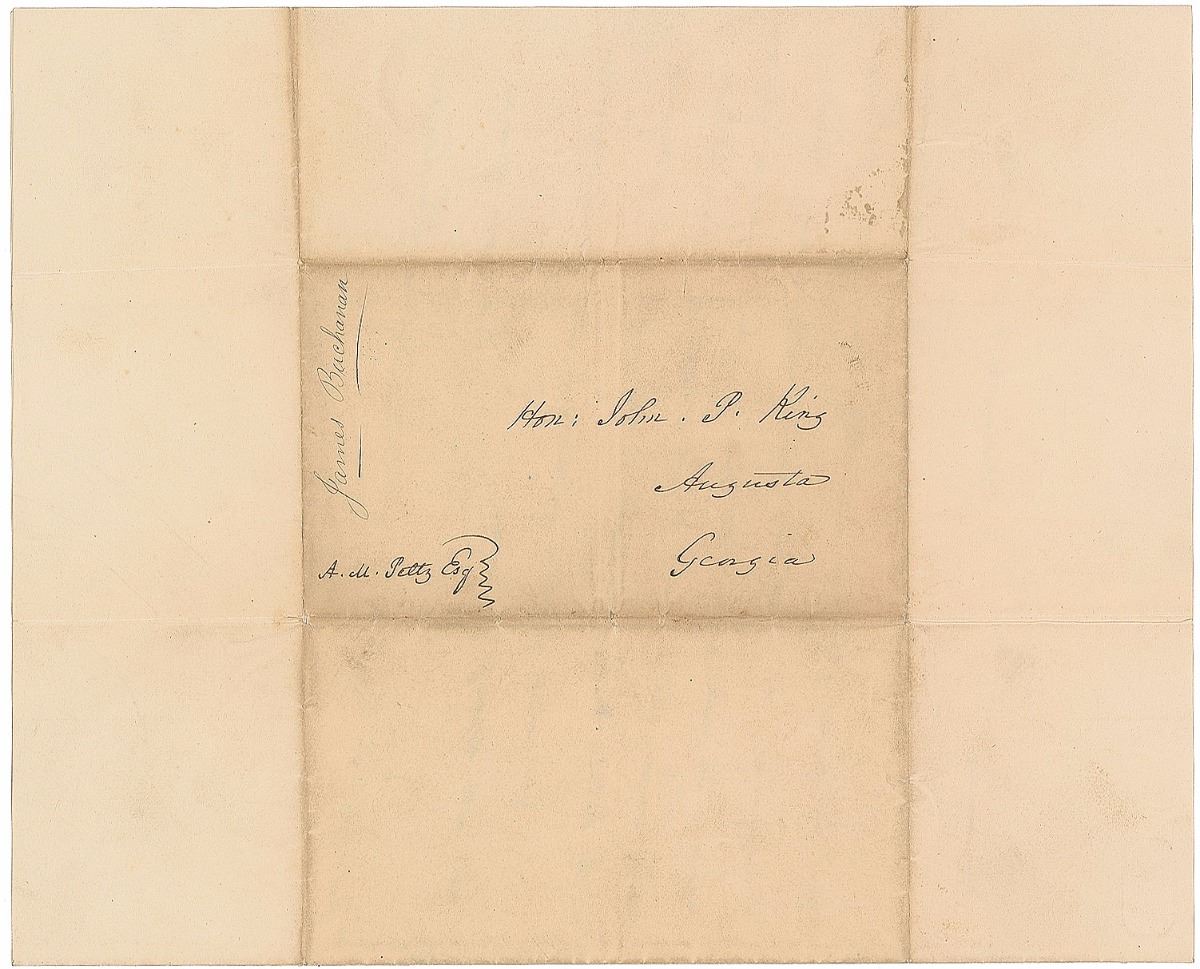 James Buchanan
Hon: John. P. King
Augusta
Georgia
A. M. Peltz Esq